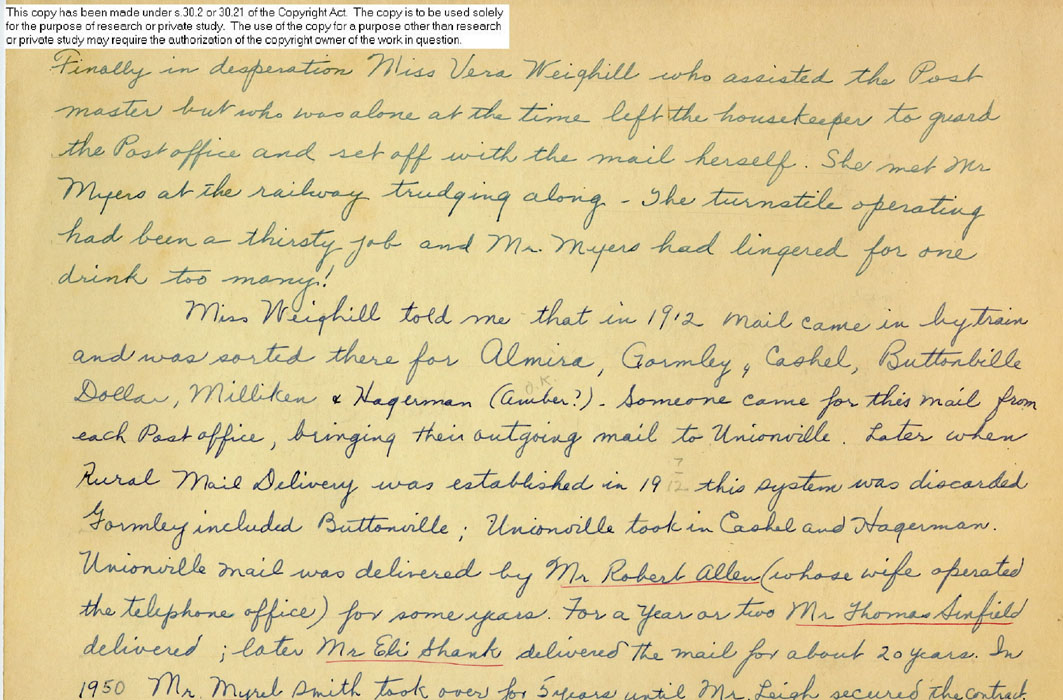 This copy has been made under s.30.2 or 30.21 of the Copyright Act. The copy is to be used solely
for the purpose of research or private study. The use of the copy for a purpose other than research
or private study may require the authorization of the copyright owner of the work in question.
Finally in desperation Miss Vera Weighill who assisted the Post
master but who was alone at the time left the housekeeper to guard
the Post office and set off with the mail herself. She met Mr
Myers at the railway trudging along - The turnstile operating
had been a thirsty job and Mr. Myers had lingered for one
drink too many!
Miss Weighill told me that in 1912 mail came in by train
and was sorted there for Almira, Gormley, Cashel, Buttonville
O.K.
Dollar, Milliken & Hagerman (Amber?). Someone came for this mail from
each Post office, bringing their outgoing mail to Unionville. Later when
7
Rural Mail Delivery was established in 19 12 this system was discarded
Gormley included Buttonville; Unionville took in Cashel and Hagerman.
Unionville mail was delivered by Mr Robert Allen (whose wife operated
the telephone office) for some years. For a year or two Mr Thomas Sinfield
delivered ; later Mr Eli Shank delivered the mail for about 20 years. In
1950 Mr. Myrel Smith took over for 5 years until Mr. Leigh secured the contract.